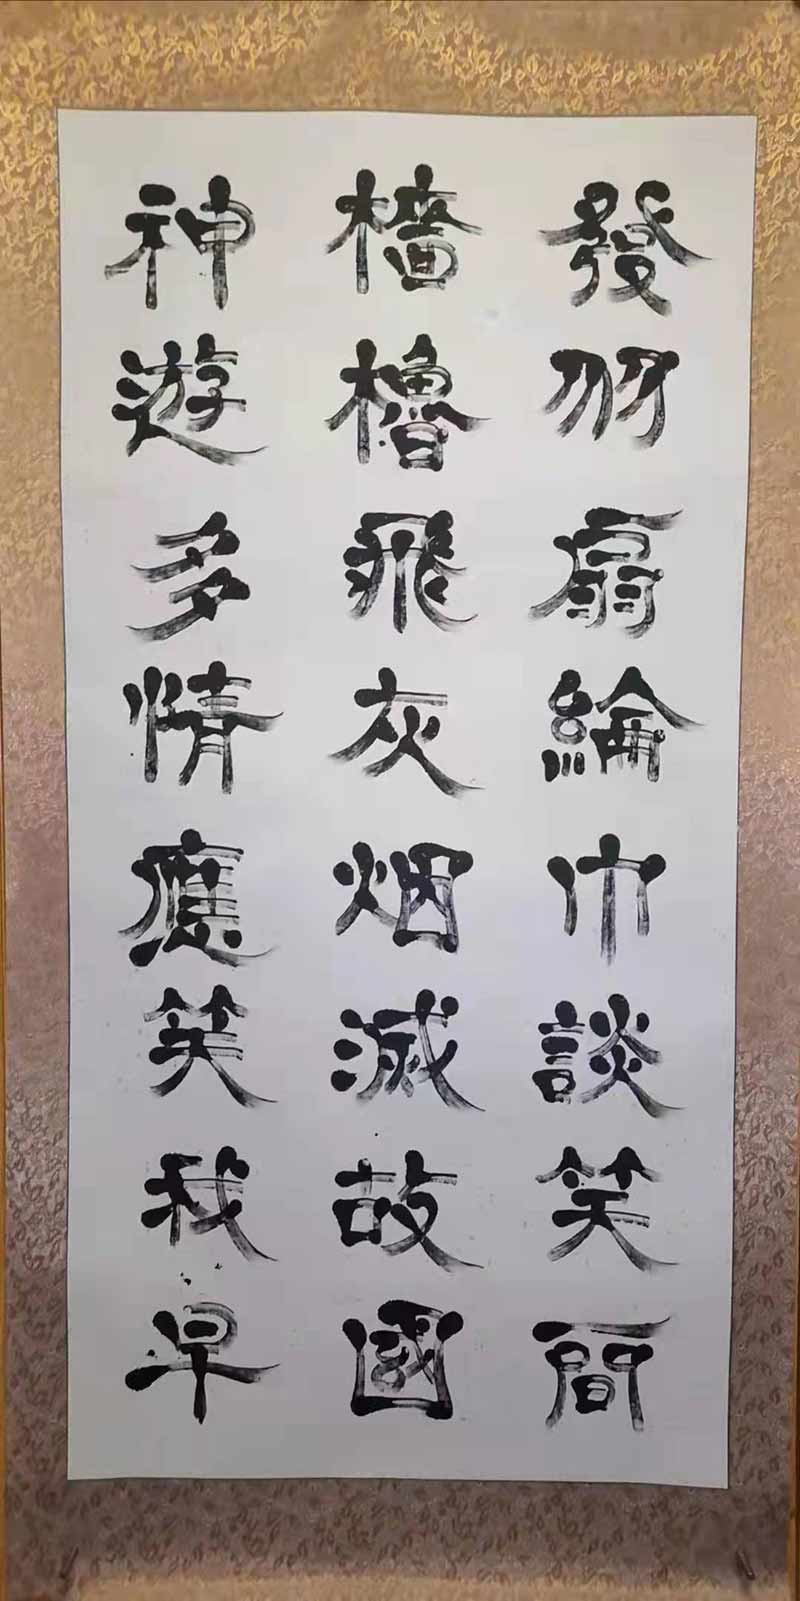 發羽扇綸巾談笑間
檣櫓飛灰烟滅故國
神遊多情應笑我早